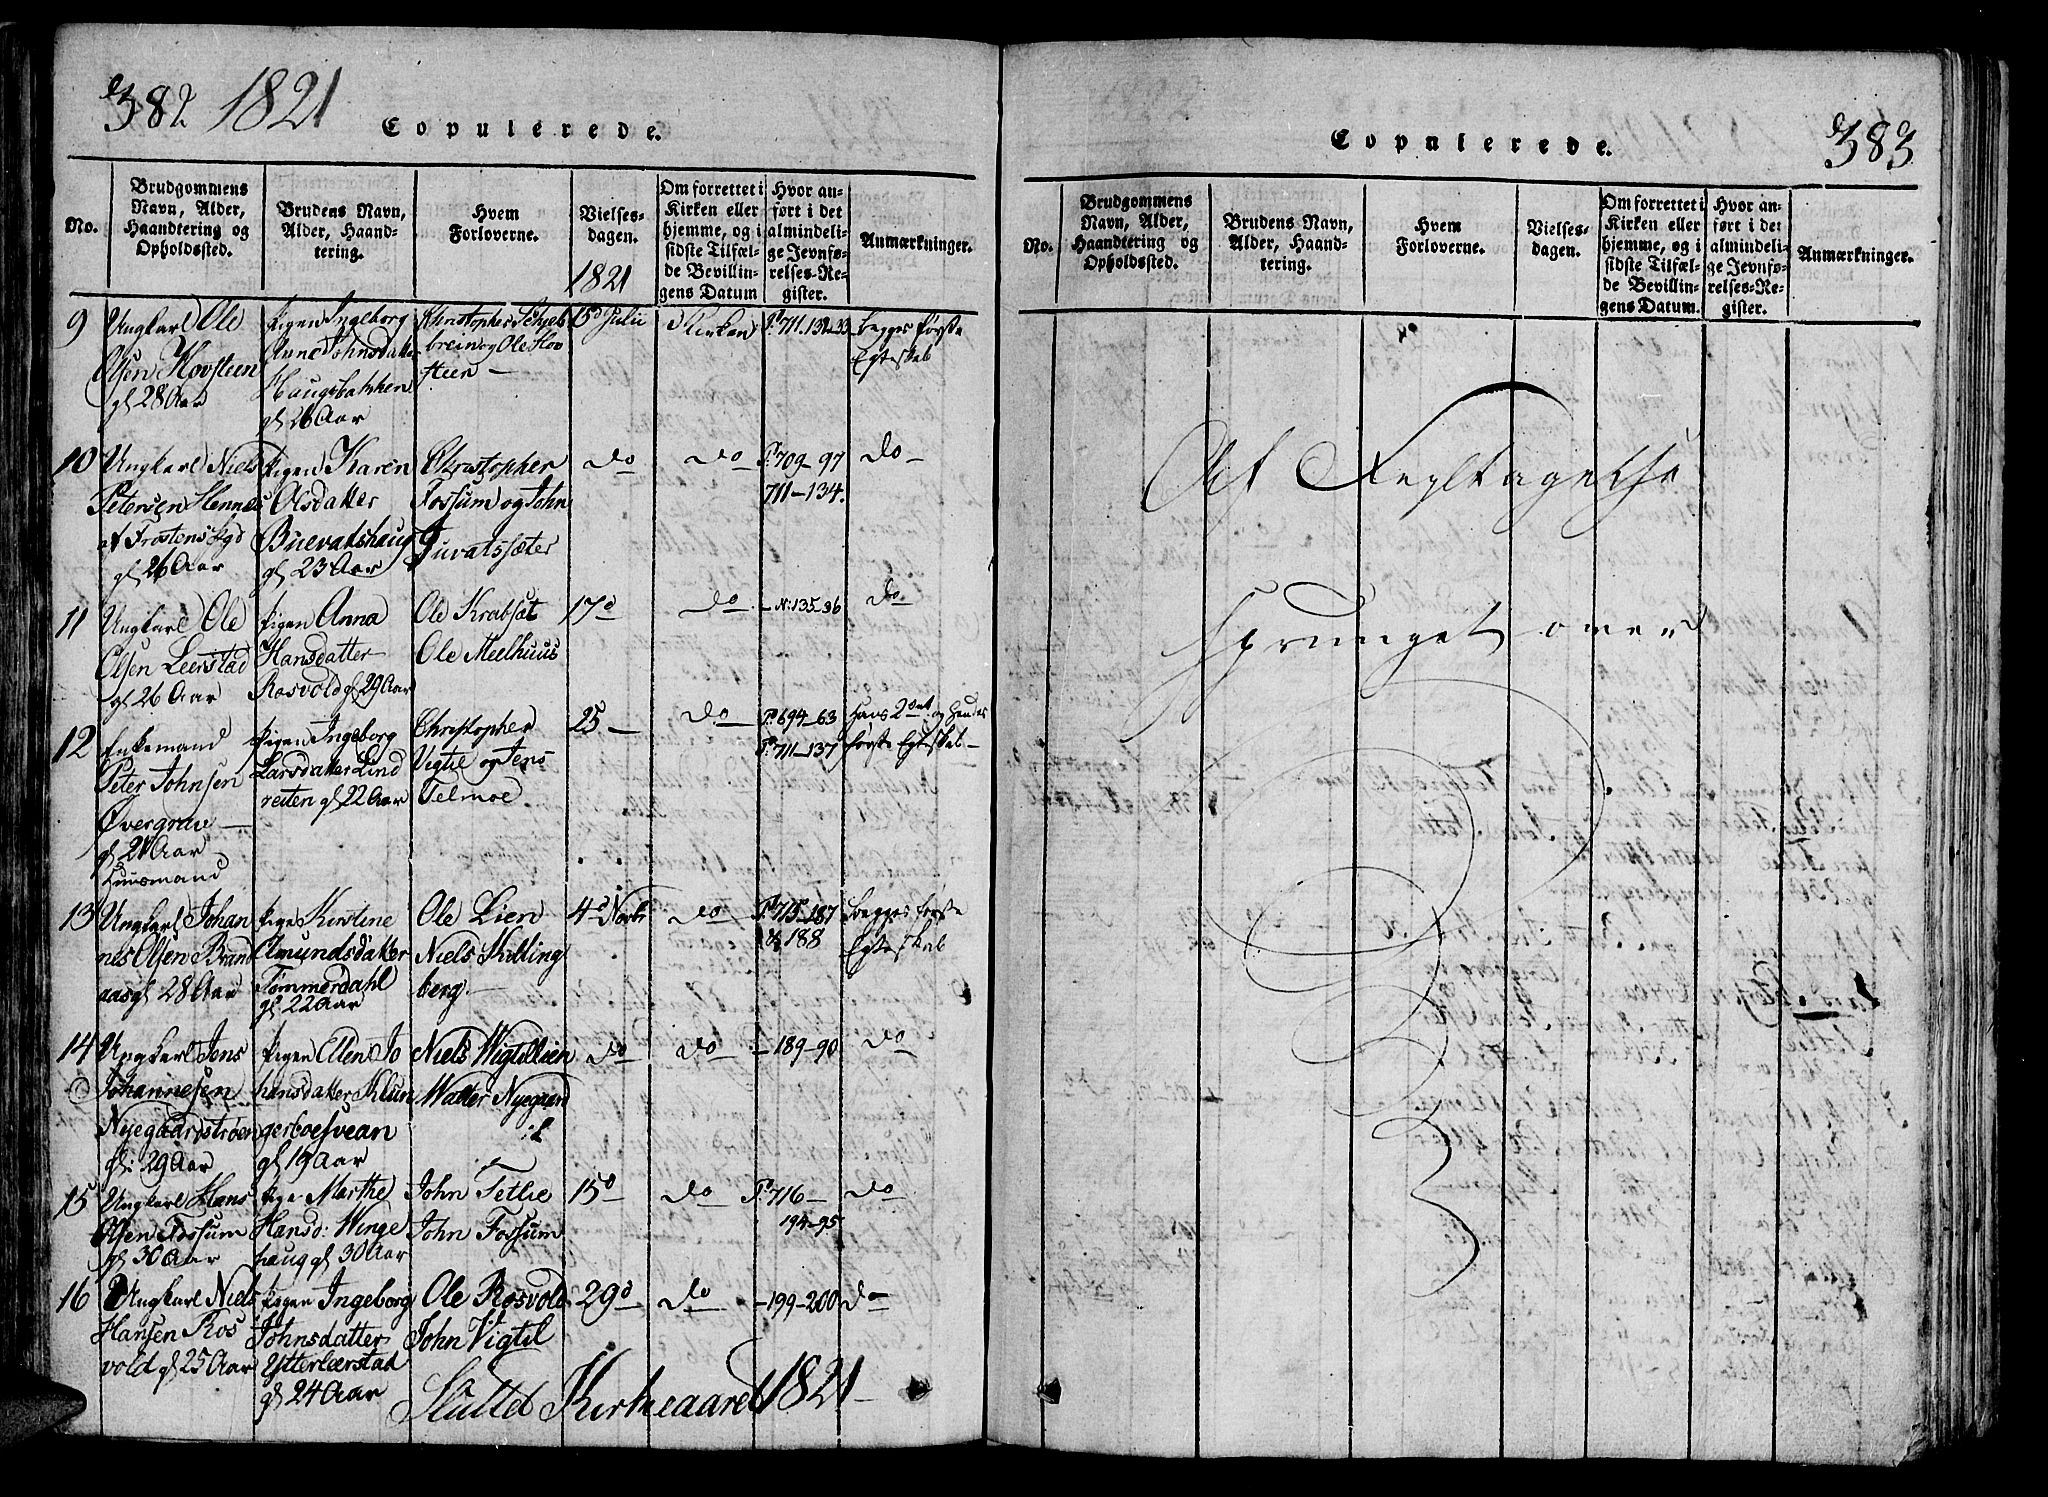 382 1821
Copulerede.
No.
Brudgommens
Navn, Alder,
Haandtering og
Opholdssted.
Brudens Navn,
Alder, Haand-
tering.
Hvem
Forloverne.
Vielses-
dagen.
1821
Om forrettet i
Kirken eller
hjemme, og i
sidste Tilfæl-
de Bevillin-
gens Datum
Hvor an-
ført i det
almindeli-
ge Jevnfø-
relses-Re-
gister.
Anmærkninger.
9
Ungkarl Ole
Olsen Hovsteen
gl 28 Aar
Pigen Ingeborg
Anne Johnsdatter
Haugsbakken
gl 26 Aar
Christopher
og Ole Hov
steen
15d Julii
Kirken
P. 711. 132-33
begges første
Egteskab
10
Ungkarl Niels
Petersen Hennes
af Frostens Pgd
gl 26 Aar
Pigen Karen
Olsdatter
Buevatshaug
gl 23 Aar
Christopher
Fossum og John
Juvatssæter
do
do
P. 709-97
711-134.
do
11
Ungkarl Ole
Olsen Leerstad
gl 26 Aar
Pigen Anna
Hansdatter
Rosvold gl 29 Aar
Ole Krabsæt
Ole Meelhuus
17d
do
- N: 135-36
do
12
Enkemand
Peter Johnsen
Øvergrav
gl 21 Aar
Huusmand
Pigen Ingeborg
Larsdatter Lind
reiten gl 22 Aar
Christopher
Vigtil og Jens
Telmoe
25
do
P. 694-63
P. 711-137
hans 2det og hendes
første Egteskab
13
Ungkarl Johan
nes Olsen Brand
aas gl 28 Aar
Pige Kirstine
Amundsdatter
Tømmerdahl
gl 22 Aar
Ole Lien
Niels Skilling
berg
4d Novbr
do
P. 715-187
& 188
begges første
Egteskab
14
Ungkarl Jens
Johannesen
Nyegaardstrøen
gl: 29 Aar
Pigen Ellen Jo
hansdatter Klun
gerboesvean
gl 19 Aar
Niels Wigtillien
Walter Nyegaard
do
do
- 189-90
do
15
Ungkarl Hans
Olsen Fossum
gl 30 Aar
Pige Marthe
Hansd: Winge
haug gl 30 Aar
John Tetlie
John Fossum
15d
do
P. 716-
194-95
do
16
Ungkarl Niels
Hansen Ros
vold gl 25 Aar
Pigen Ingeborg
Johnsdatter
Ytterleerstad
gl 24 Aar
Ole Rosvold
John Vigtil
29d
do
- 199-200
do
Sluttet Kirkeaaret 1821
Copulerede.
383
No.
Brudgommens
Navn, Alder,
Haandtering og
Opholdssted.
Brudens Navn,
Alder, Haand-
tering.
Hvem
Forloverne.
Vielses-
dagen.
Om forrettet i
Kirken eller
hjemme, og i
sidste Tilfæl-
de Bevillin-
gens Datum.
Hvor an-
ført i det
almindeli-
ge Jevnfø-
relses-Re-
gister.
Anmærkninger.
Af Fejltagelse
sprunget over